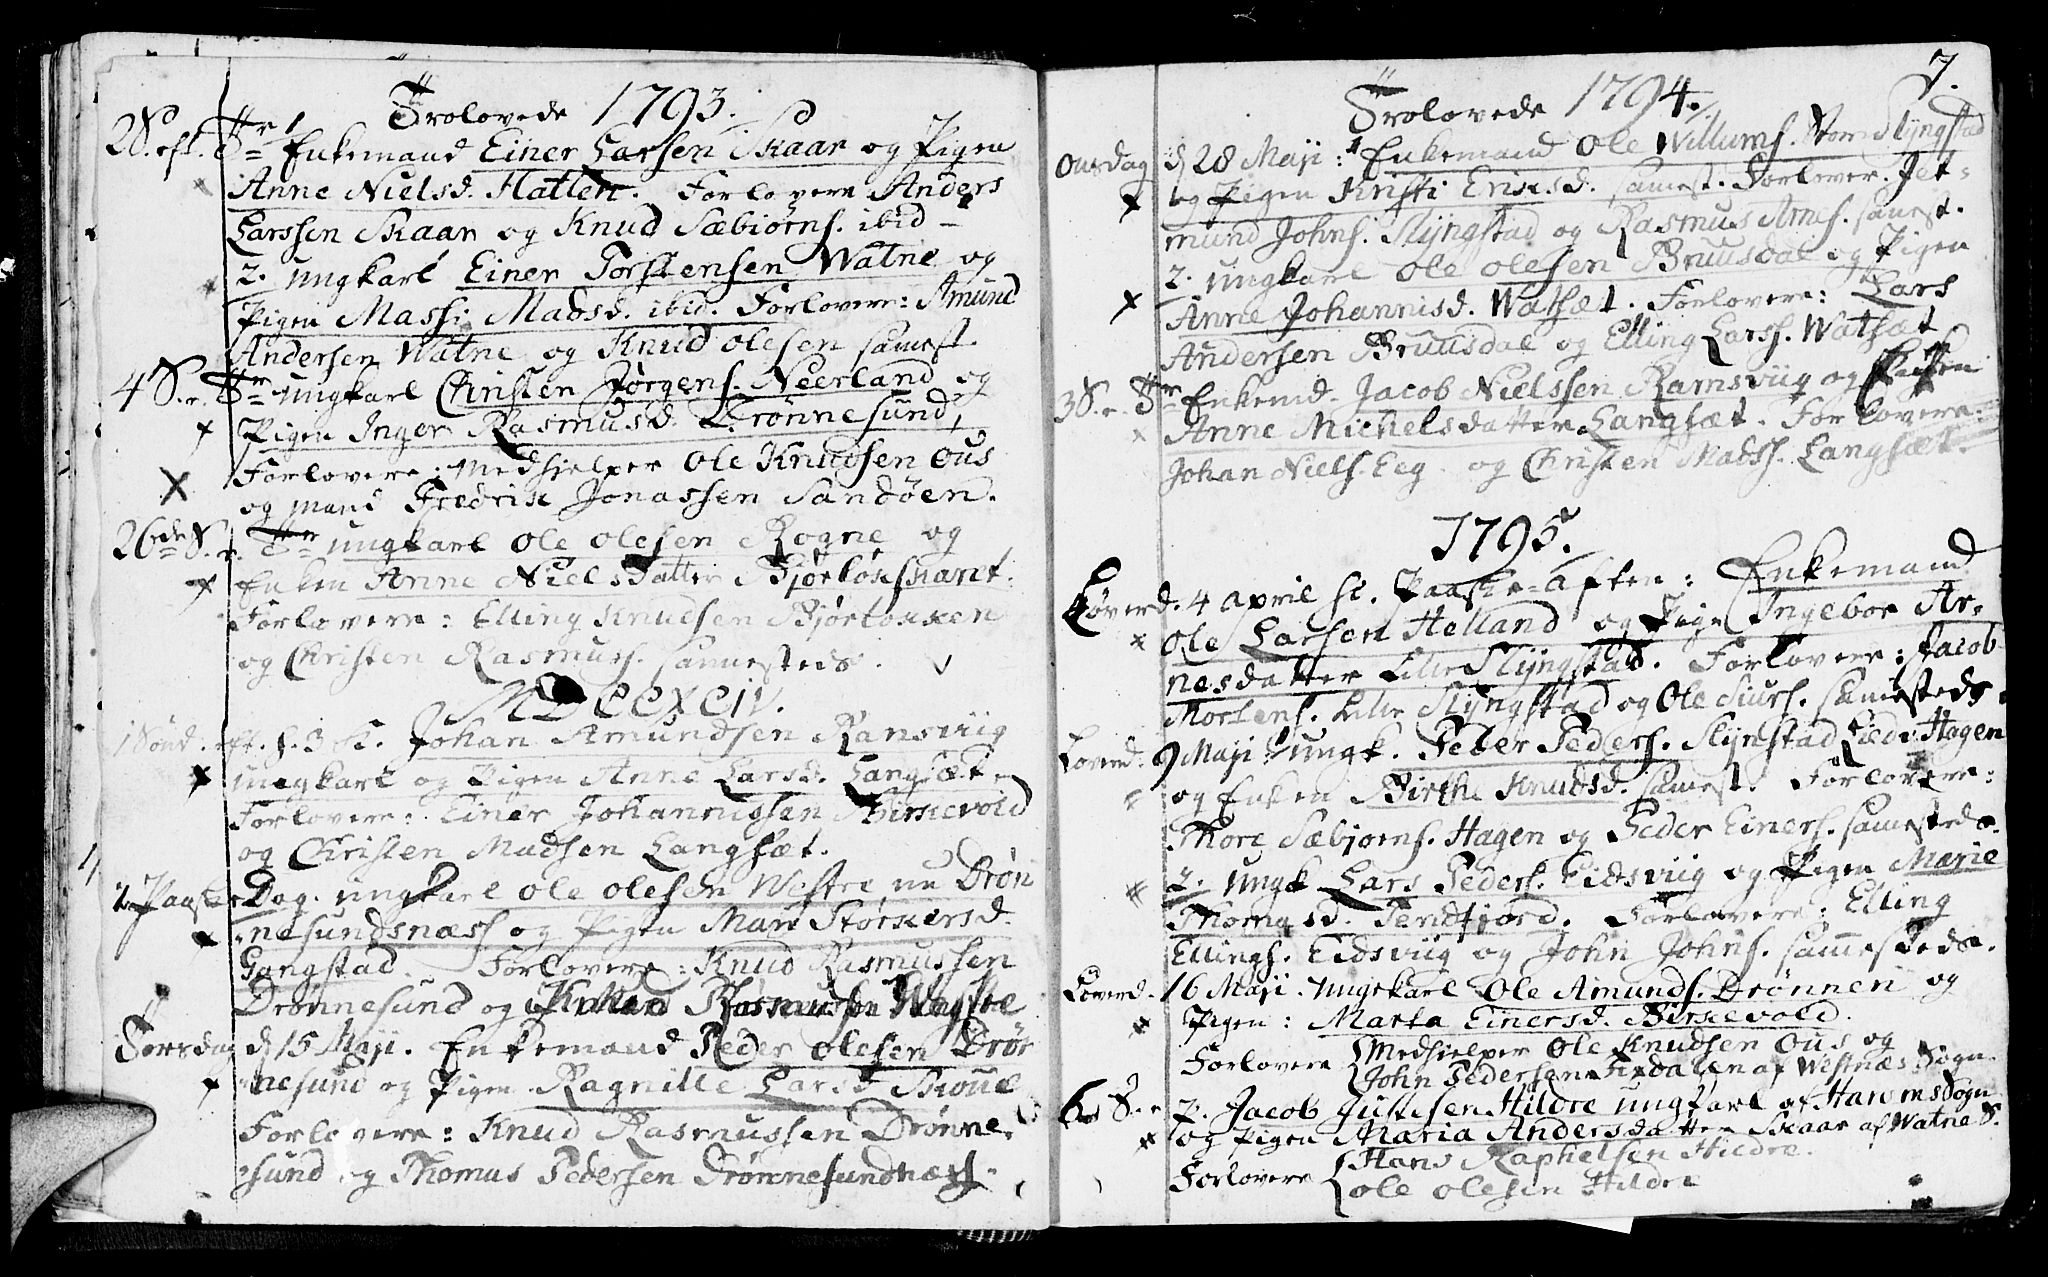 Trolovede 1793.
2 S. eft. Tr. 1 Enkemand Einer Larsen Skaar og Pigen
Anne Nielsd. Hatlen. Forlovere Anders
Larssen Skaar og Knud Sæbiørns. ibid –
2. ungkarl Einer Torstensen Watne og
Pigen Massi Madsd. ibid. Forlovere: Amund
Andersen Watne og Knud Olesen samest.
4 S. e. Tr. ungkarl Christen Jørgens. Neerland og
Pigen Inger Rasmusd. Drønnesund,
Forlovere: Medhjelper Ole Knudsen Ous
og mand Fredrik Jonassen Sandøen.
26de S. e. Tr. ungkarl Ole Olesen Rogne og
Enken Anne Nielsdatter
Forlovere: Elling Knudsen
og Christen Rasmuss. sammesteds.
MDCCXCIV.
1 Sönd. eft. h. 3 K. Johan Amundsen Ransviig
ungkarl og Pigen Anne Larsd. Langsæt.
Forlovere: Einer Johannissen Birkevold
og Christen Madsen Langsæt.
2. Paaske Dag. ungkarl Ole Olesen Westre nu Drøn
nesundsnæss og Pigen Mari Storkersd.
Gangstad. Forlovere: Knud Rasmussen
Drønnesund og Rasmussen
Torsdag d 15 Maji. Enkemand Peder Olesen Drøn
nesund og Pigen Ragnille Larsd. Skoue
Forlovere: Knud Rasmussen Drønne,
sund og Thomas Pedersen Drønnesundnæss.
7.
Trolovede 1794.
Onsdag d 28 Maji: 1 Enkemand Ole Willums. Stor Slyngstad
og Pigen Kristi Eriksd. samest. Forlover. Jet-
mund Johns. Slyngstad og Rasmus Arnes. samest.
2. ungkarl Ole Olesen Bruusdal og Pigen
Anne Johannisd. Watsæt. Forlovere: Lars
Andersen Bruusdal og Elling Larss. Watsæt
3 S. e. Tr. Enkemd. Jacob Nielssen Ramsviig og
Anne Michelsdatter Langsæt. Forlovere:
Johan Niels. Eeg og Christen Madss. Langsæt.
1795.
Løverd. 4 April h. Paaske-Aften: Enkemand
Ole Larsen Helland og Pige Ingebor Ar-
nesdatter Lille Slyngstad. Forlovere: Jacob
Mortens. Lille Slyngstad og Ole Siurs. sammesteds
Løverd. 9 Maji: ungk. Peder Peders. Slynstad Hagen
og Enken Birthe Knudsd. samest. Forlovere:
Thore Sæbjorns. Hagen og Peder Einers. sammesteds.
2. ungk Lars Peders. Eidsviig og Pigen Marie
Thomasd. Tendfjord. Forlovere: Elling
Ellings. Eidsviig og John Johns. sammesteds.
Løverd. 16 Maji. ungekarl Ole Amunds. Drønnen og
Pigen: Marta Einersd. Birkevold.
Forlovere Medhjelper Ole Knudsen Ous og
John Pedersen af Westnæs Sogn.
6 S. e P. Jacob Hildre ungkarl af Harams Sogn
og Pigen Maria Andersdatter Skaar af Watne S.
Forlovere Hans Raphelsen Hildre.
Ole Olesen Hildre